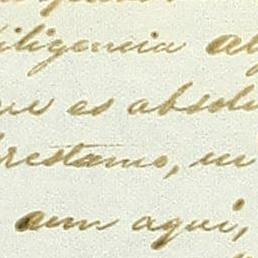 diligencia al
que es absolu
prestamo, en
aun aqui,